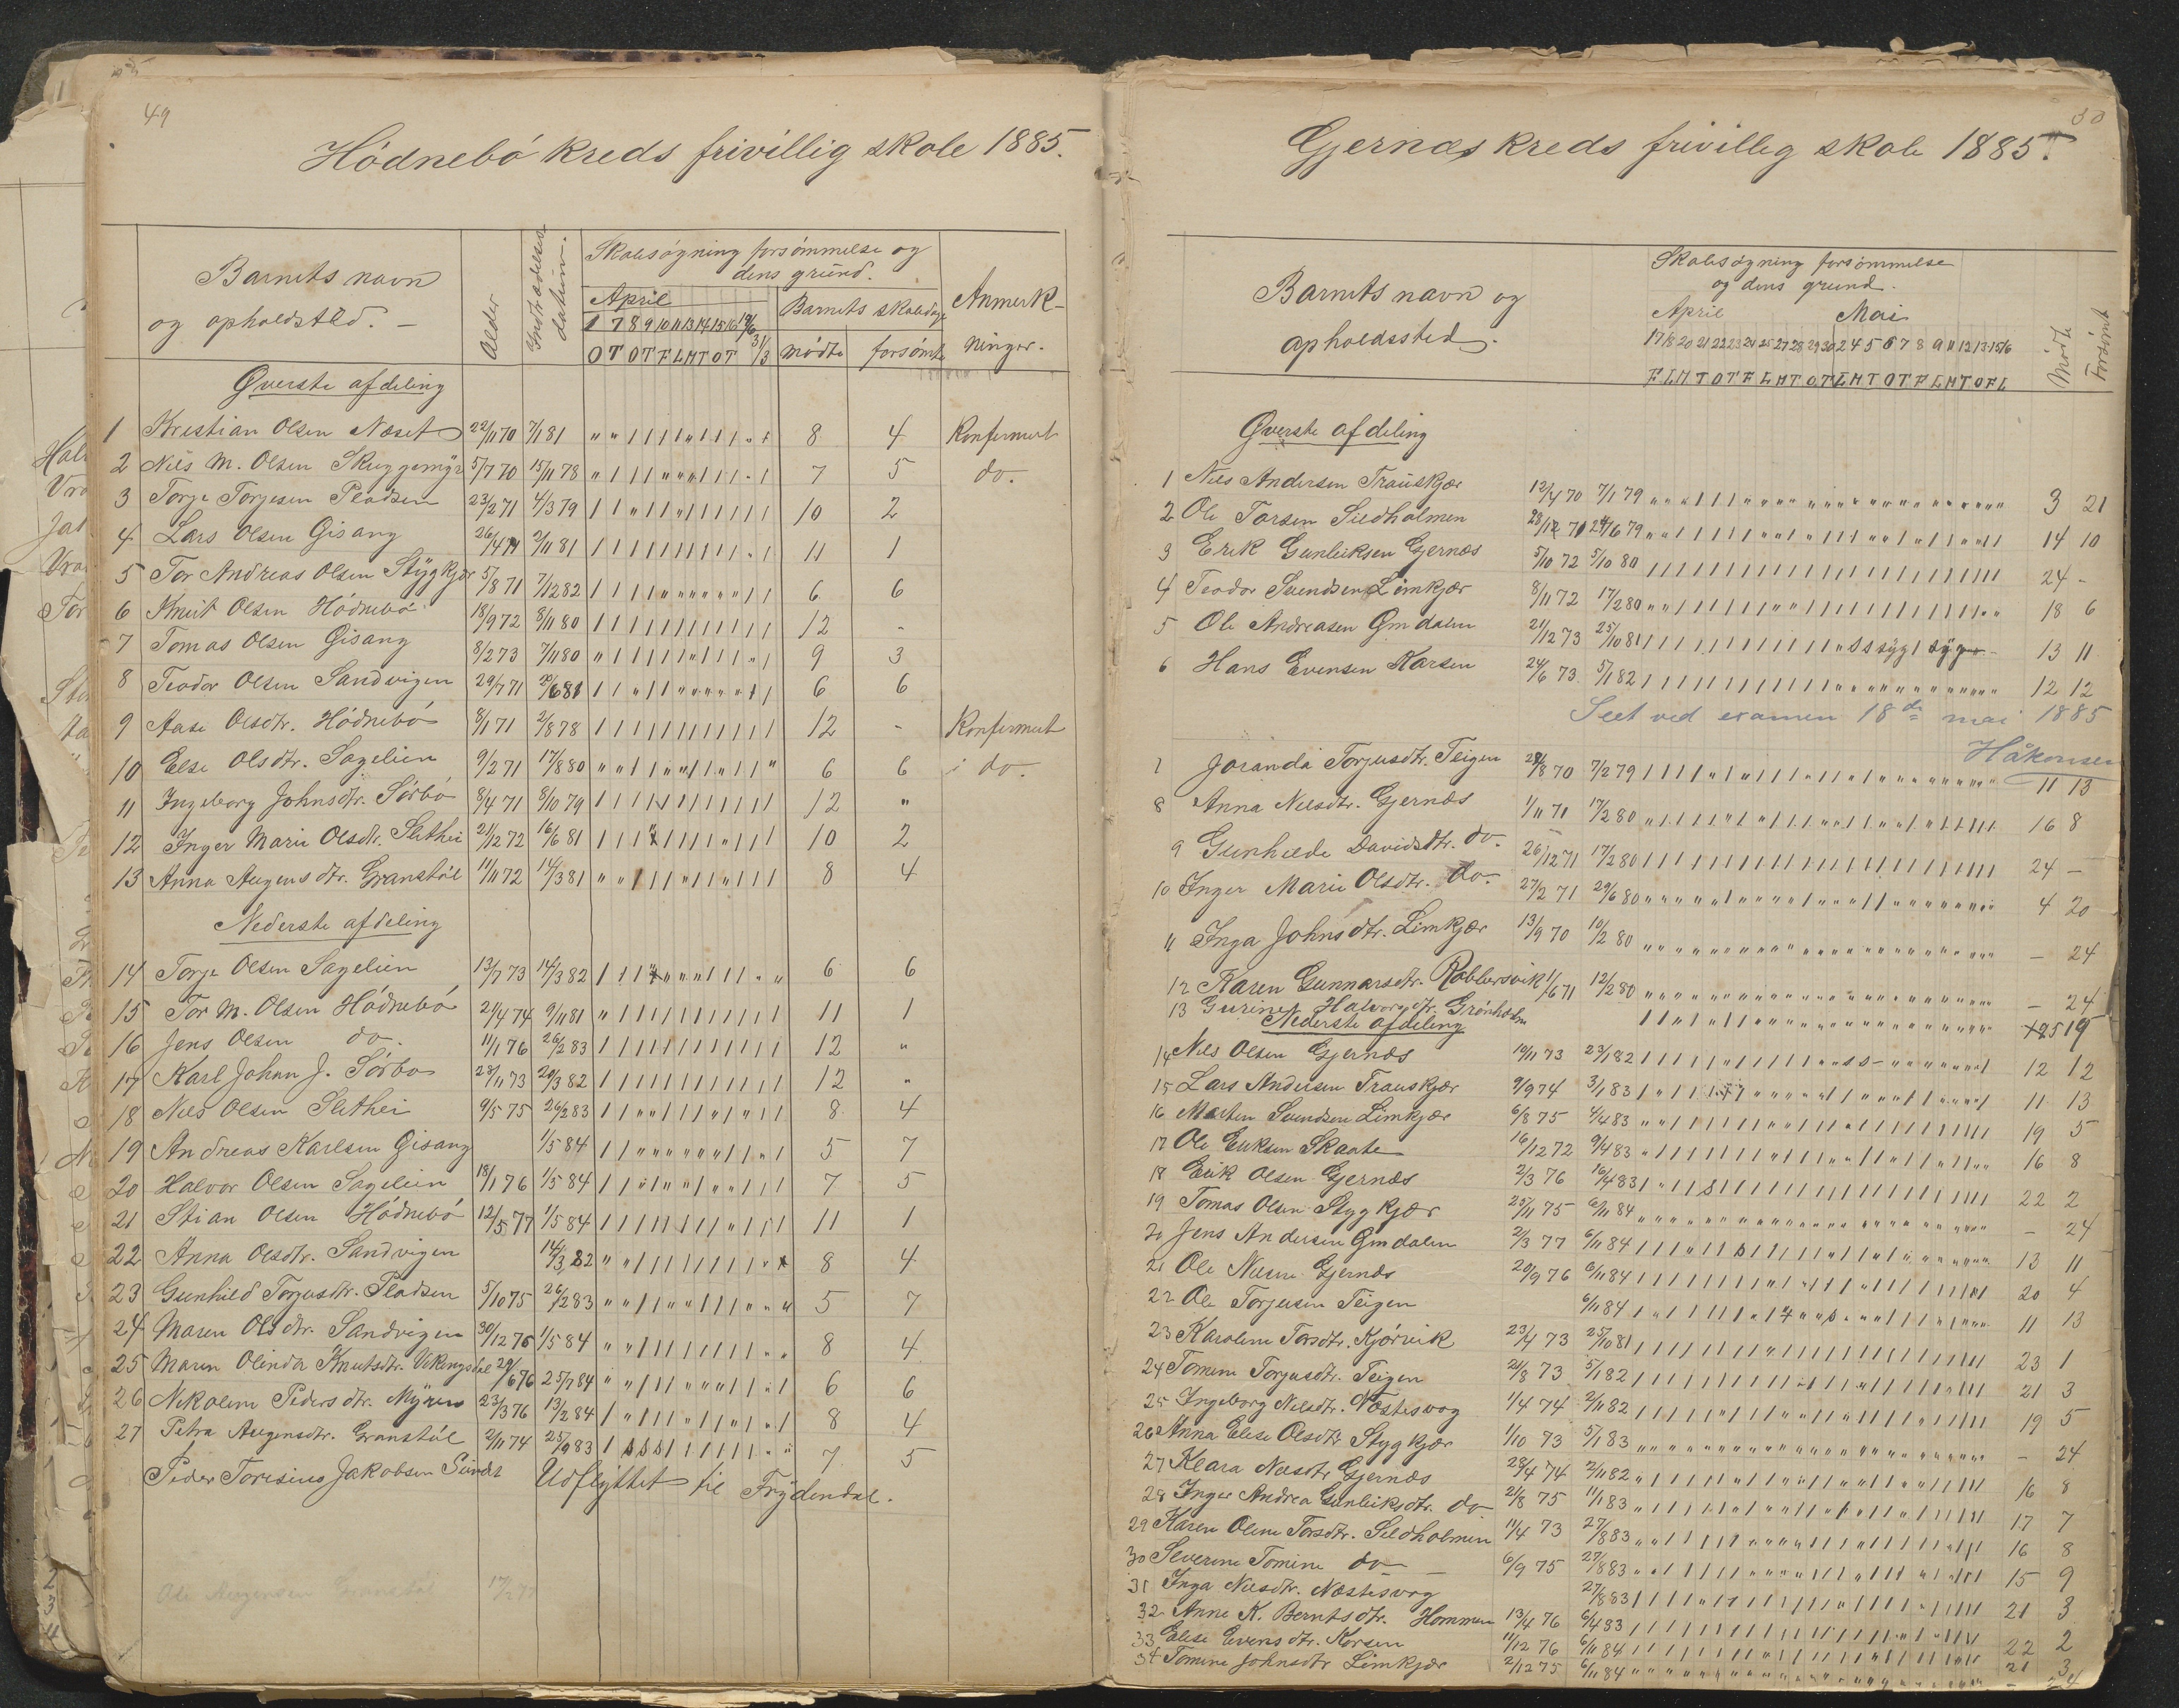 49
Hódnebó kreds frivillig skole 1885.
Barnets navn
og opholdsted. —
Alder
Indtrædelses datum.
Skolesøgning forsømmelse og
dens grund.
April
1 7 8 9 10 11 13 14 15 16
O T O T F L M T O T
Barnets skoledage
mødte forsømte
Anmerk-
ninger.
Øverste afdeling
1 Kristian Olsen Næset 22/11 70 7/1 81 8 4 Konfirmert
2 Nils M. Olsen Skuggemyr 5/7 70 15/11 78 7 5 do.
3 Torje Torjesen Pladsen 23/2 71 4/3 79 10 2
4 Lars Olsen Gisang 26/4 71 2/11 81 11 1
5 Tor Andreas Olsen Stygkjær 5/8 71 7/12 82 6 6
6 Knut Olsen Hódnebó 18/9 72 8/11 80 12 -
7 Tomas Olsen Gisang 8/2 73 7/11 80 9 3
8 Teodor Olsen Sandvigen 29/7 71 6 81 6 6
9 Aase Olsdtr. Hódnebó 8/1 71 2/8 78 12 - Konfirmert
10 Else Olsdtr. Sagelien 9/2 71 17/8 80 6 6 do.
11 Ingeborg Johnsdtr. Sórbó 8/4 71 8/10 79 12 "
12 Inger Marie Olsdtr. Slethei 21/12 72 16/6 81 10 2
13 Anna Augensdtr. Granstøl 11/11 72 14/3 81 8 4
Nederste afdeling
14 Torje Olsen Sagelien 13/7 73 14/3 82 6 6
15 Tor M. Olsen Hódnebó 21/4 74 9/11 81 11 1
16 Jens Olsen do. 11/1 76 26/2 83 12 "
17 Karl Johan J. Sórbo 28/11 73 20/3 82 12 "
18 Nils Olsen Slethei 9/5 75 26/2 83 8 4
19 Andreas Karlsen Gisang 1/5 84 5 7
20 Halvor Olsen Sagelien 18/1 76 1/5 84 7 5
21 Stian Olsen Hódnebó 12/5 77 1/5 84 11 1
22 Anna Olsdtr. Sandvigen 14/3 82 8 4
23 Gunhild Torjusdtr. Pladsen 5/10 75 26/2 83 5 7
24 Maren Olsdtr. Sandvigen 30/12 76 1/5 84 8 4
25 Maren Olinda Knutsdtr. Vikingsdal 29/6 76 25/7 84 6 6
26 Nikoline Pedersdtr. Myren 23/3 76 13/2 84 8 4
27 Petra Augensdtr. Granstøl 2/11 74 25/9 83 7 5
Peder Torisius Jakobsen Udflyttet til Frydendal.
Ole Augensen Granstøl
Gjernæs kreds frivillig skole 1885.
Barnets navn og
opholdssted.
Skolesøgning forsømmelse
og dens grund.
April Mai
17 18 20 21 22 23 24 25 27 28 29 30 2 4 5 6 7 8 9 11 12 13 15 16
F L M T O T F L M T O T L M T O T F L M T O F L
Mødte
Forsømt
Øverste afdeling
1 Nils Andersen Trauskjær 12/4 70 7/1 79 3 21
2 Ole Torsen Sildholmen 79 14 10
3 Erik Gunleiksen Gjernæs 5/10 72 5/10 80 24 -
4 Teodor Svendsen Limkjær 8/11 72 17/2 80 18 6
5 Ole Andreasen Ømdalen 21/12 73 25/10 81 syg syg 13 11
6 Hans Evensen Karsen 24/6 73 5/1 82 12 12
Seet ved examen 18de mai 1885
Håkonsen
7 Joranda Torjusdtr. Teigen 70 7/2 79 11 13
8 Anna Nilsdtr. Gjernæs 1/11 71 17/2 80 16 8
9 Gunhilde Davidsdtr. do. 26/12 71 17/2 80 24 —
10 Inger Marie Olsdtr. do. 27/2 71 29/6 80 4 20
11 Inga Johnsdtr. Limkjær 13/9 70 10/2 80 — 24
12 Karen Gunnarsdtr. Robbersvik 1/6 71 12/2 80 — 24
13 Gurine Halvorsdtr. Grønholm 19
Nederste afdeling
14 Nils Olsen Gjernæs 19/11 73 23/1 82 12 12
15 Lars Andersen Trauskjær 9/9 74 3/1 83 11 13
16 Morten Svendsen Limkjær 6/8 75 4/4 83 19 5
17 Ole Eriksen Skaate 16/12 72 9/4 83 16 8
18 Erik Olsen Gjernæs 2/3 76 16/4 83 22 2
19 Tomas Olsen Stygkjær 25/11 75 6/11 84 - 24
20 Jens Andersen Ømdalen 2/3 77 6/11 84 13 11
21 Ole Nilsen Gjernæs 20/9 76 6/11 84 20 4
22 Ole Torjusen Teigen 6/11 84 11 13
23 Karoline Torsdtr. Kjórvik 23/4 73 25/10 81 23 1
24 Tomine Torjusdtr. Teigen 21/8 73 5/1 82 21 3
25 Ingeborg Nilsdtr. Næstesvog 1/4 74 2/11 82 19 5
26 Anna Elise Olsdtr Stygkjær 1/10 73 5/1 83 - 24
27 Klara Nilsdtr Gjernæs 28/4 74 2/11 82 16 8
28 Inger Andrea Gunleiksdtr. do 21/8 75 11/1 83 17 7
29 Karen Oline Torsdtr. Sildholmen 11/4 73 27/8 83 16 8
30 Severine Tomine do — 6/9 75 27/8 83 15 9
31 Inga Nilsdtr. Næstesvog 27/8 83 21 3
32 Anne K. Berntsdtr. Hommen 13/4 76 6/4 83 22 2
33 Elise Evensdtr. Korsen 11/12 76 6/11 84 21 3
34 Tomine Johnsdtr Limkjær 2/12 75 6/11 84 - 24